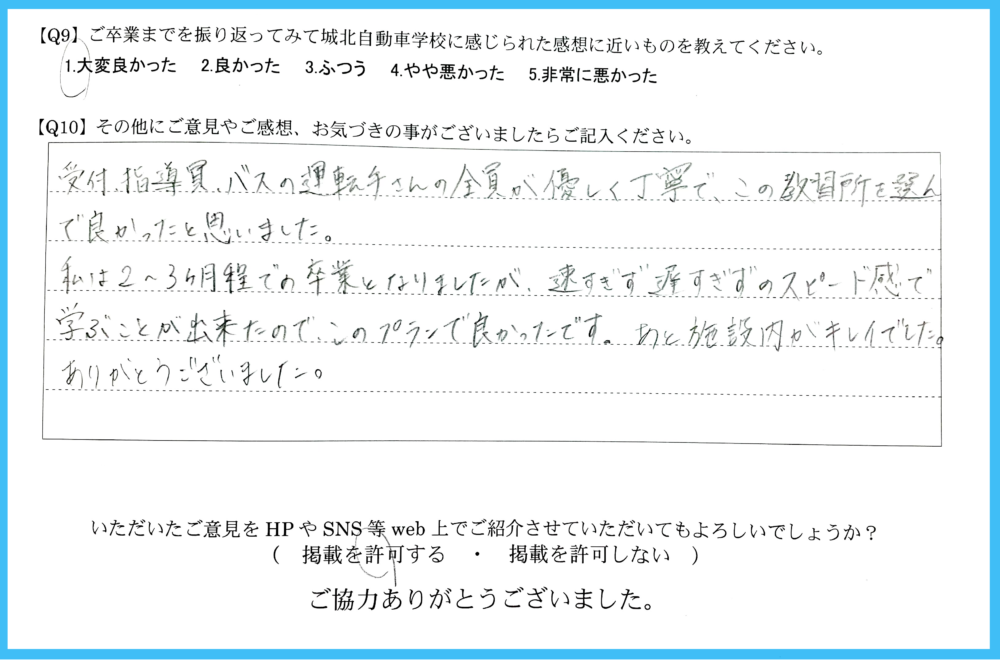 【Q9】ご卒業までを振り返ってみて城北自動車学校に感じられた感想に近いものを教えてください。
1.大変良かった 2.良かった 3.ふつう 4.やや悪かった 5.非常に悪かった
【Q10】その他にご意見やご感想、お気づきの事がございましたらご記入ください。
受付、指導員、バスの運転手さんの全員が優しく丁寧で、この教習所を選ん
で良かったと思いました。
私は2〜3ヶ月程での卒業となりましたが、速すぎず遅すぎずのスピード感で
学ぶことが出来たので、このプランで良かったです。あと施設内がキレイでした。
ありがとうございました。
いただいたご意見をHPやSNS等web上でご紹介させていただいてもよろしいでしょうか？
（ 掲載を許可する ・ 掲載を許可しない ）
ご協力ありがとうございました。